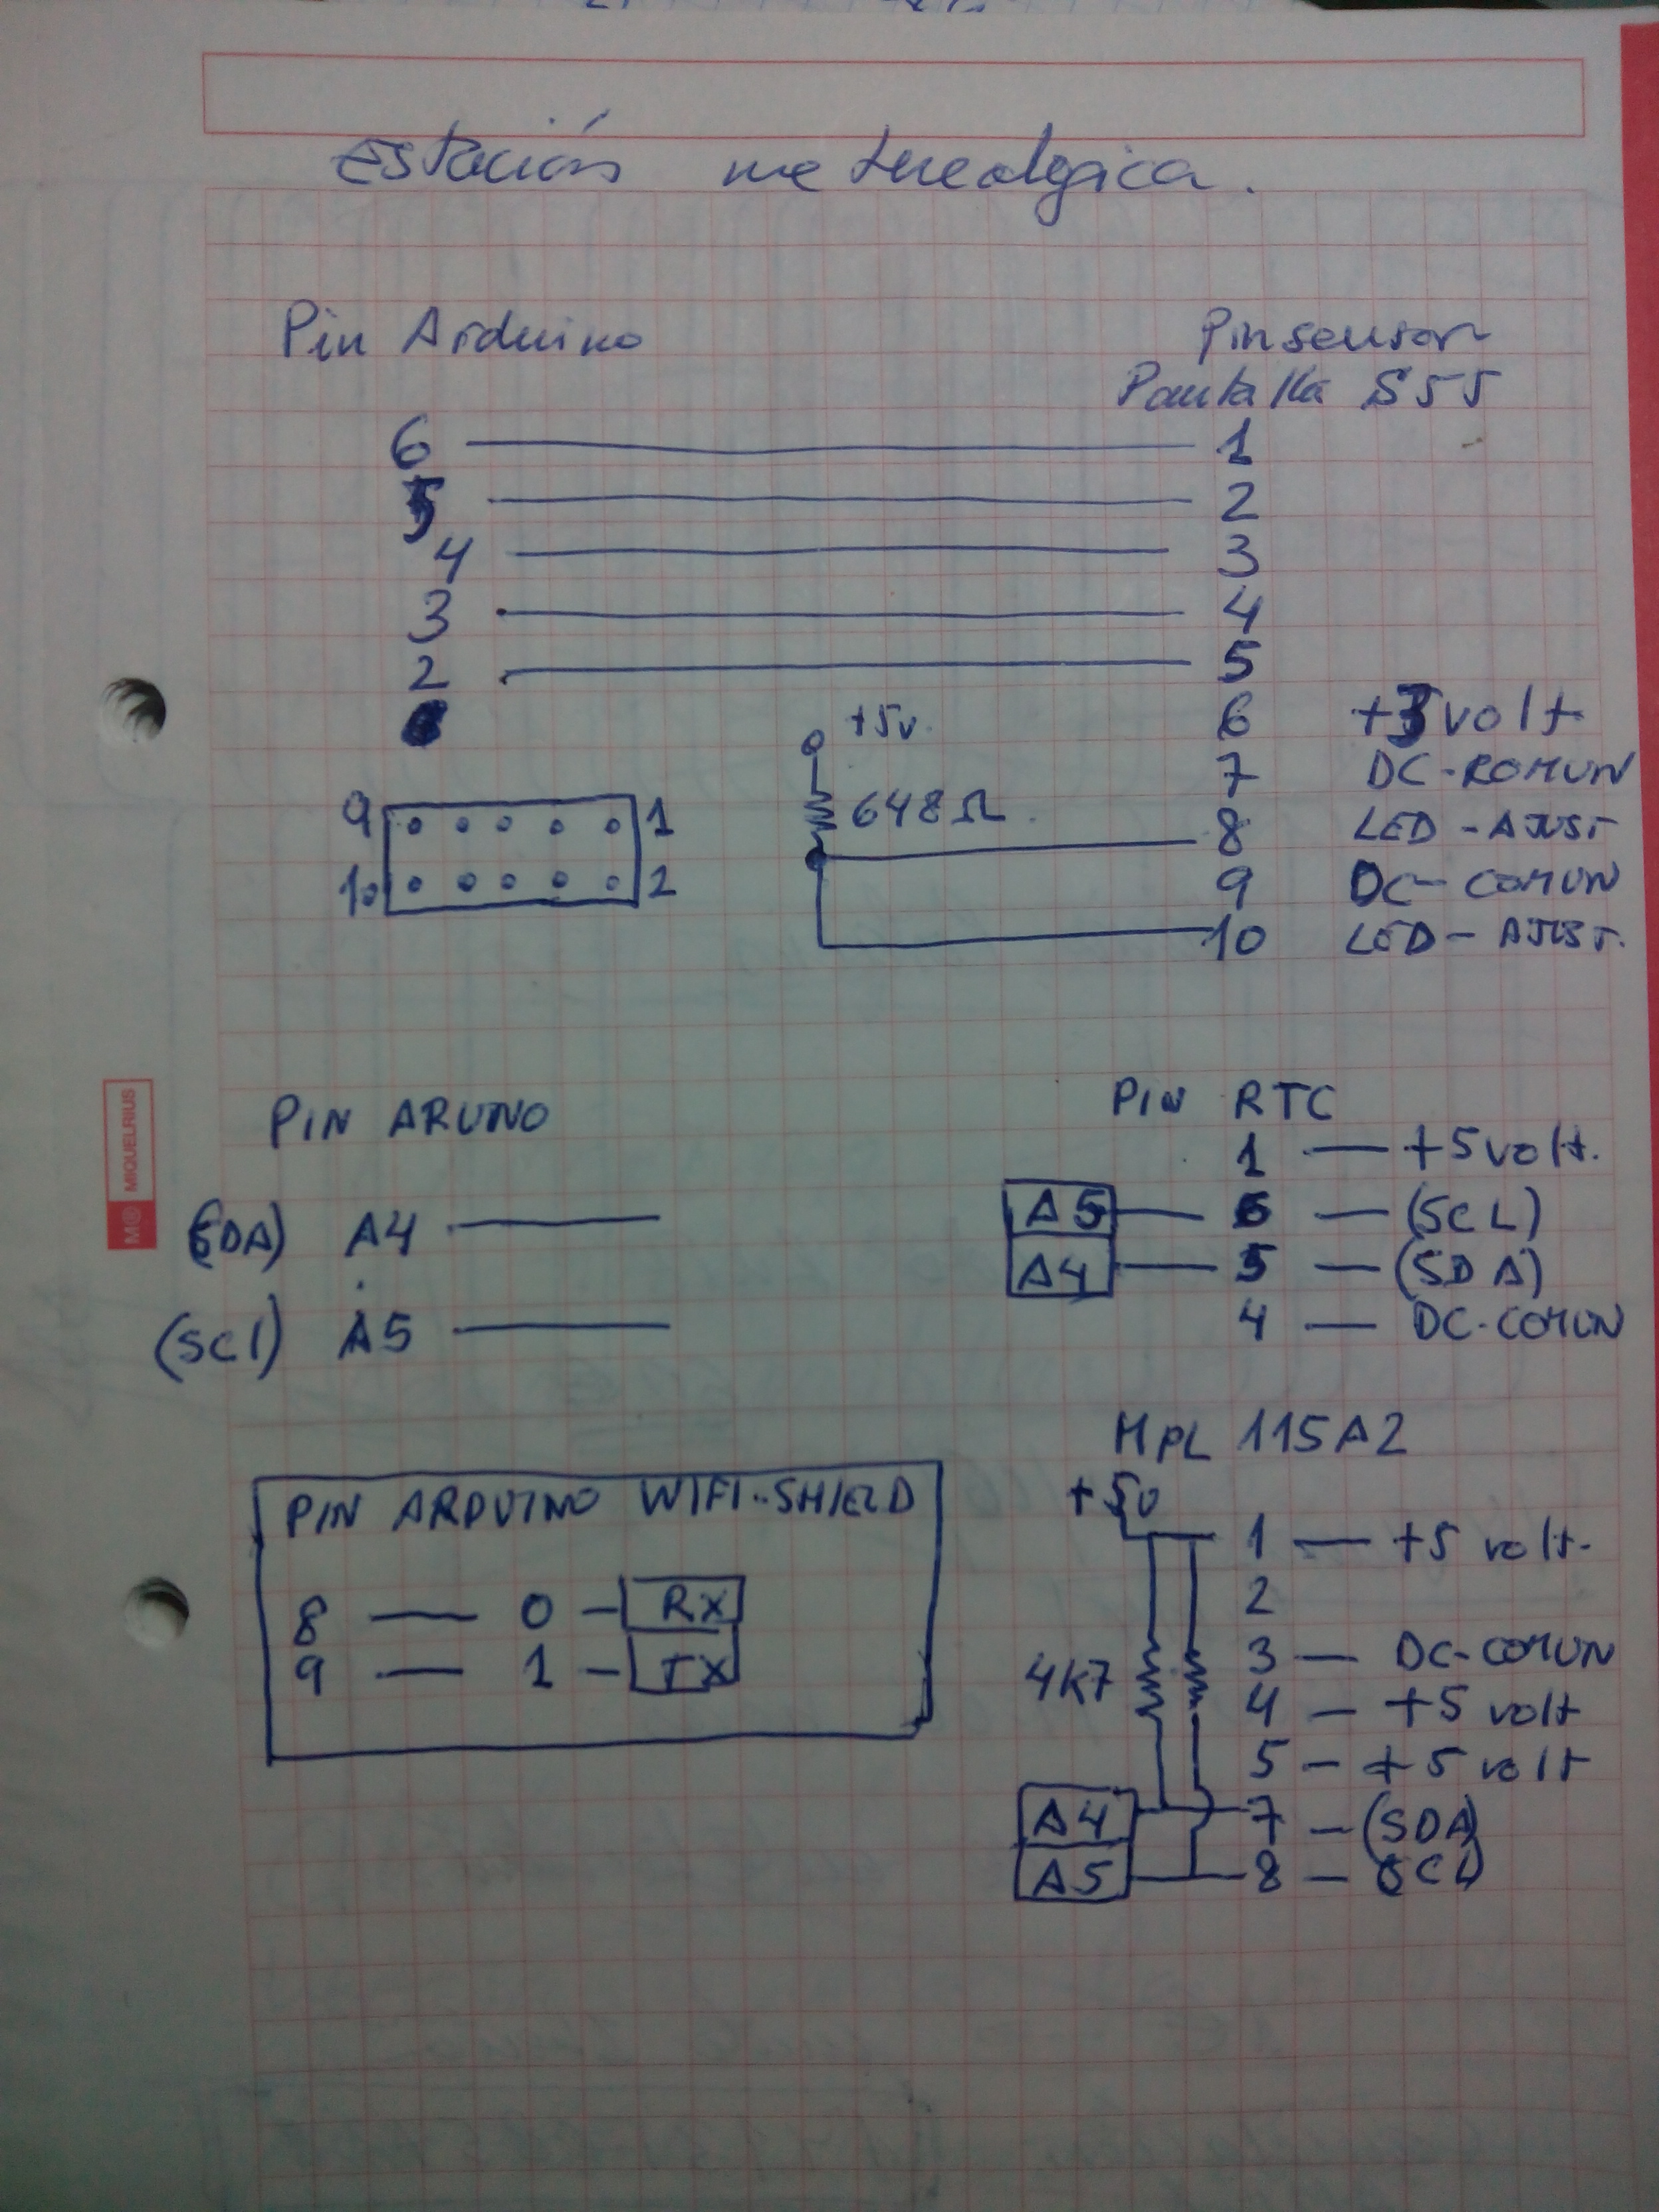 Estación metereológica.
Pin Arduino
Pin sensor
Pantalla S55
6 1
5 2
4 3
3 4
2 5
6 +3volt
7 DC-ROMUN
+5v.
648Ω.
8 LED-AJUST
9 DC-COMUN
10 LED-AJUST.
9 1
10 2
PIN ARUNO
PIN RTC
1 — +5volt.
A5 — 6 — (SCL)
A4 — 5 — (SDA)
4 — DC-COMUN
(SDA) A4
(SCl) A5
MPL 115A2
+5v
1 — +5 volt.
2
3 — DC-COMUN
4K7
4 — +5 volt
5 — +5 volt
A4 7 — (SDA)
A5 8 — SCL)
PIN ARDUINO WIFI-SHIELD
8 — 0 — RX
9 — 1 — TX
M® MIQUELRIUS